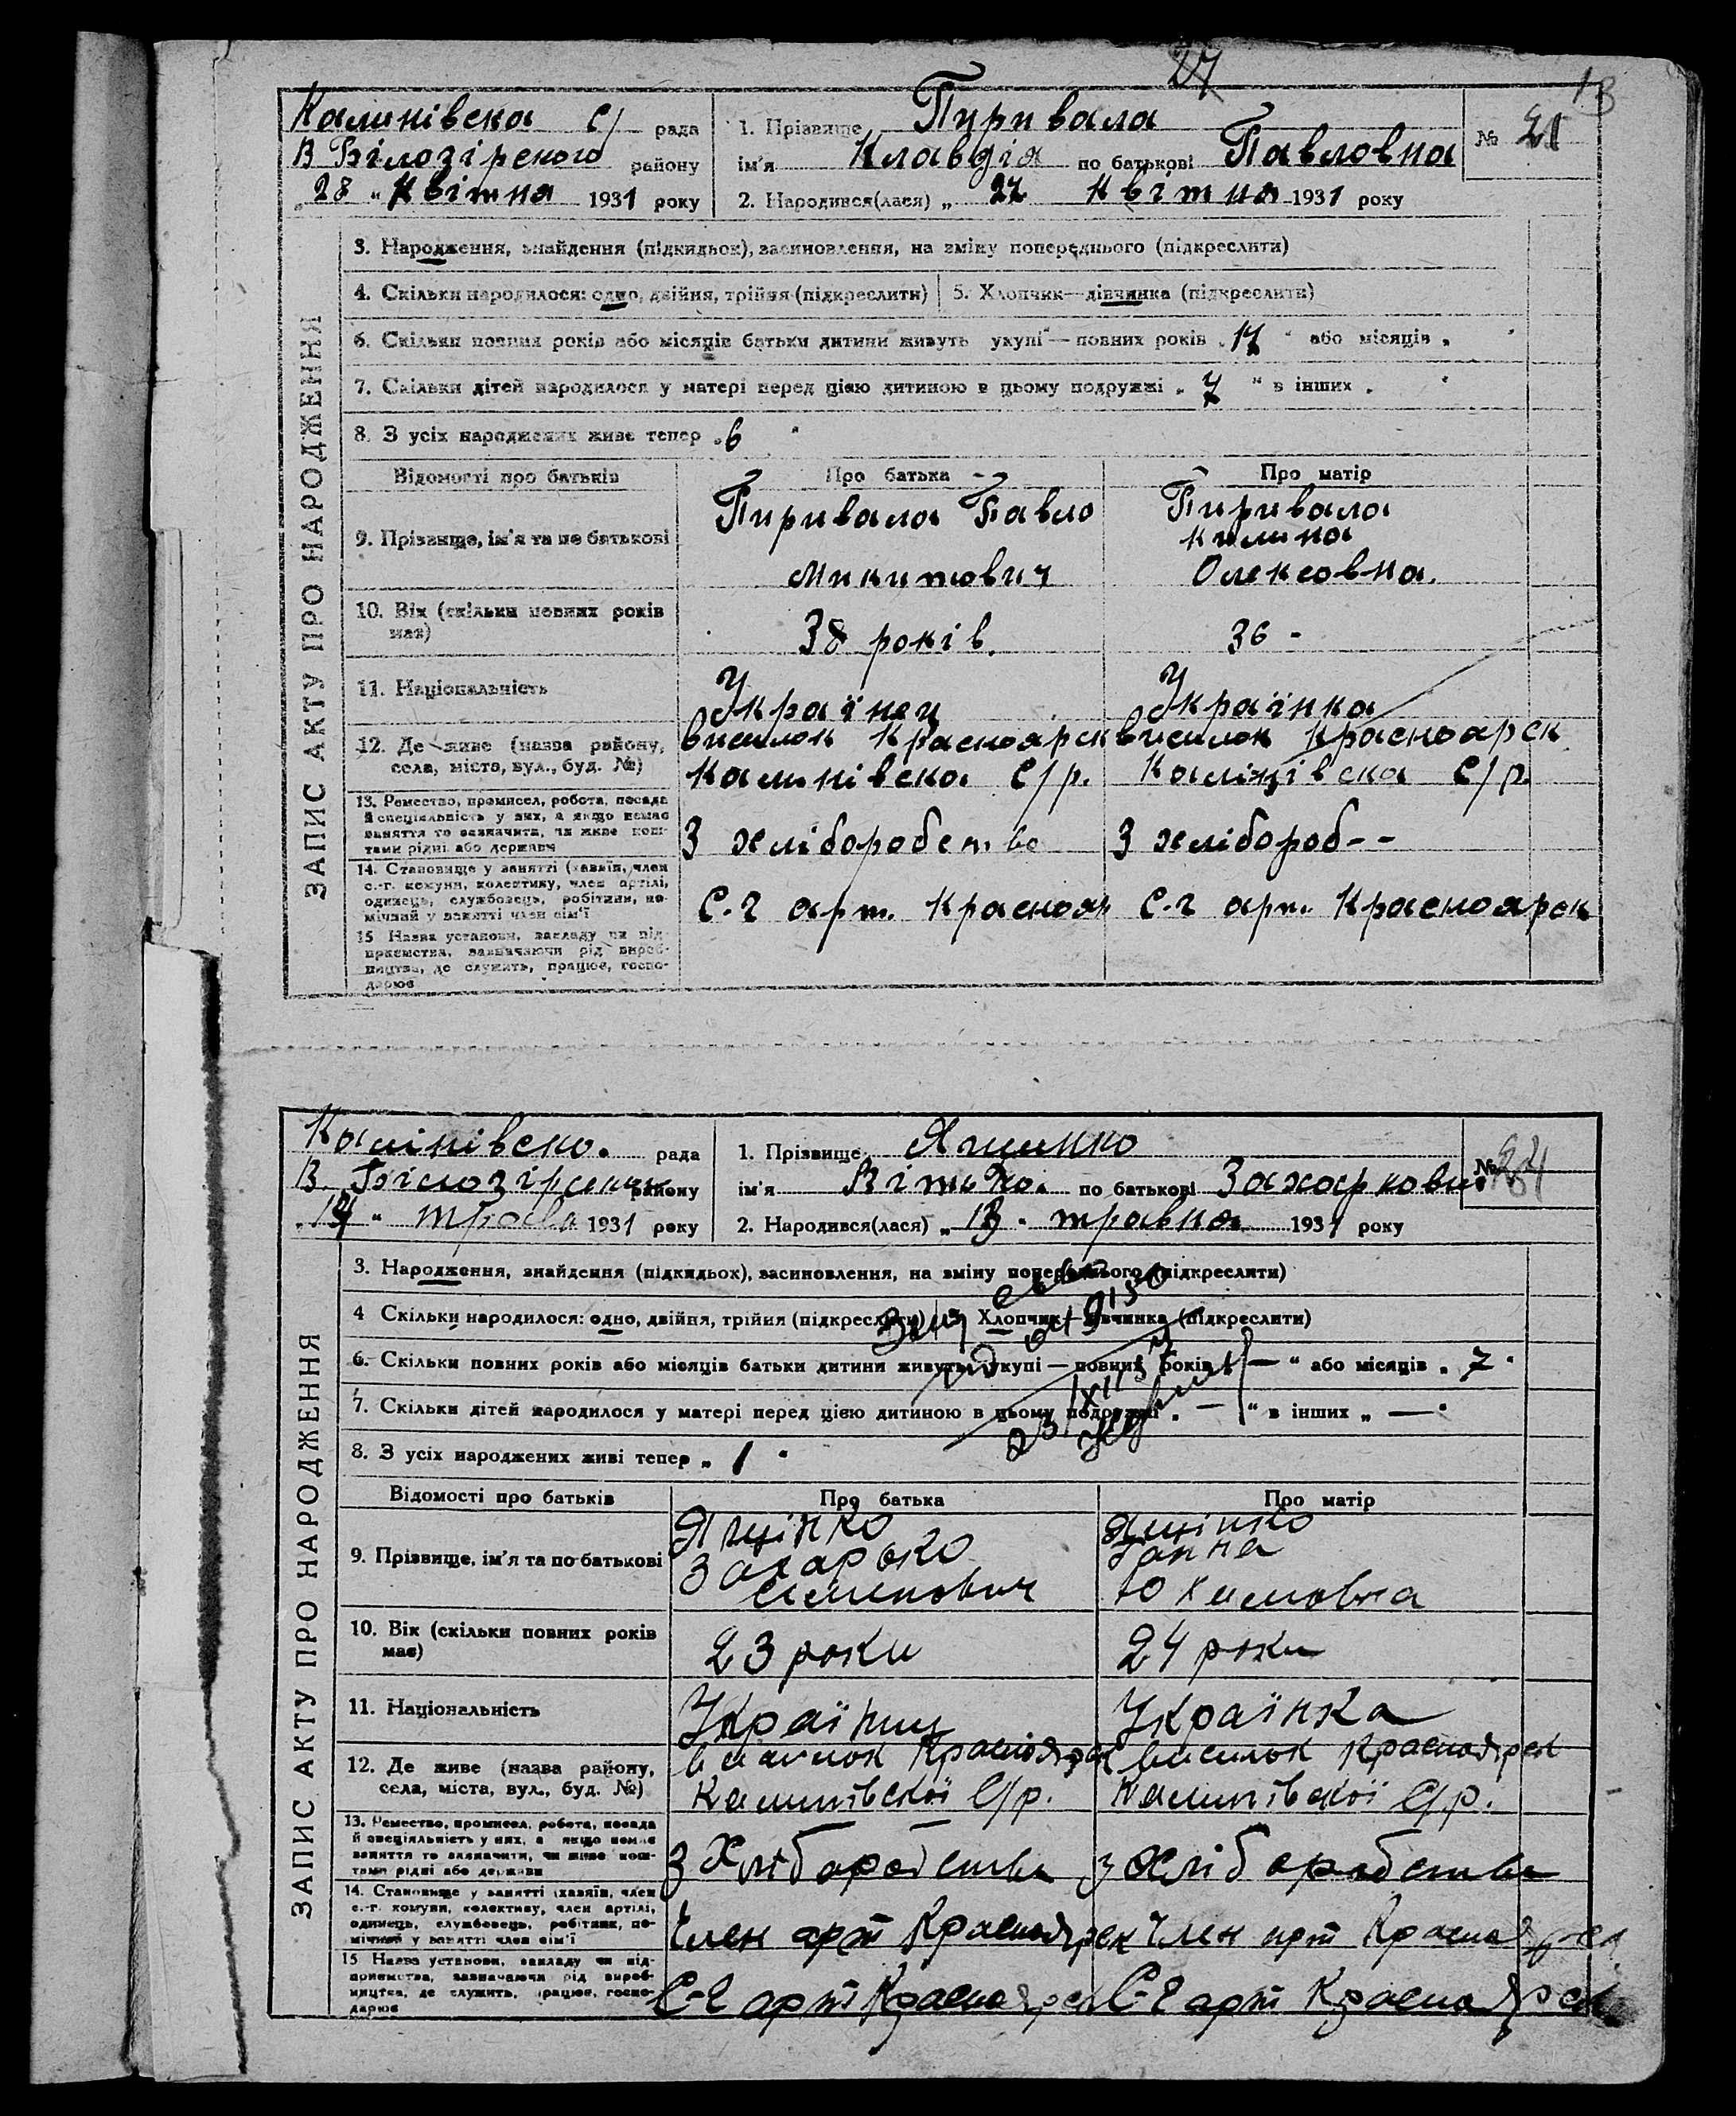 27
13
Калинівска С/ рада
В Білозірского району
„ 28 “ Квітня 1931 року
1. Прізвище Пиривала
ім'я Клавдія по батькові Павловна
2. Народився(лася) „ 27 Квітня 1931 року
№ 21
ЗАПИС АКТУ ПРО НАРОДЖЕННЯ
3. Народження, знайдення (підкидьок), засиновлення, на зміну попереднього (підкреслити)
4. Скільки народилося: одно, двійня, трійня (підкреслити) 5. Хлопчик—дівчинка (підкреслити)
6. Скільки повних років або місяців батьки дитини живуть укупі — повних років „ 17 “ або місяців „ “
7. Скільки дітей народилося у матері перед цією дитиною в цьому подружжі „ 7 “ в інших „ “
8. З усіх народжених живе тепер „ 6 “
Відомості про батьків Про батька Про матір
9. Прізвище, ім'я та по батькові
Пиривала Павло
Микитович
Пиривала
Килина
Олексовна.
10. Вік (скільки повних років має)
38 років.
36 -
11. Національність
Українец
Українка
12. Де живе (назва району, села, міста, вул., буд. №)
висилок Красноярск
Калинівска С/р.
висилок Красноарск
Калінівска С/р.
13. Ремество, промисел, робота, посада
й спеціяльність у них, а якщо немає
заняття то зазначити, чи живе кош-
тами рідні або держави
З хліборобство
З хлібороб--
14. Становище у занятті (хавяїн, член
с.-г. комуни, колективу, член артілі,
одинець, службовець, робітник, по-
мічний у занятті член сім'ї
С.г арт. Краснояр
С.г арт. Красноярск
15 Назва установи, закладу чи під-
приємства, зазначаючи рід вироб-
ництва, де служить, працює, госпо-
дарює
Калінівска. рада
В району
„ 14 “ 1931 року
1. Прізвище
ім'я по батькові
2. Народився(лася) „ 13 “ травня 1931 року
№
ЗАПИС АКТУ ПРО НАРОДЖЕННЯ
3. Народження, знайдення (підкидьох), засиновлення, на зміну попереднього (підкреслити)
4 Скільки народилося: одно, двійня, трійня (підкреслити) Хлопчик—дівчинка (підкреслити)
6. Скільки повних років або місяців батьки дитини живуть укупі — повних років „ — “ або місяців „ 7 “
7. Скільки дітей народилося у матері перед цією дитиною в цьому подружжі „ — “ в інших „ — “
8. З усіх народжених живі тепер „ 1 “
Відомості про батьків Про батька Про матір
9. Прізвище, ім'я та по батькові
Захарько
Семенович
Ганна
Юхимовна
10. Вік (скільки повних років має)
23 роки
24 роки
11. Національність
Українец
Українка
12. Де живе (назва району, села, міста, вул., буд. №)
висилок Красноярск
Калинівскої С/р.
висилок Красноярск
Калинівскої С/р.
13. Ремество, промисел, робота, посада
й спеціяльність у них, а якщо немає
заняття то зазначити, чи живе кош-
тами рідні або держави
З Хліборобства
з хліборобства
14. Становище у занятті (хавяїн, член
с.-г. комуни, колективу, член артілі,
одинець, службовець, робітник, по-
мічний у занятті член сім'ї
Член арт Красноярск
Член арт Красноярск
15 Назва установи, закладу чи під-
приємства, зазначаючи рід вироб-
ництва, де служить, працює, госпо-
дарює
С-г арт Красноярск
С-г арт Красноярск